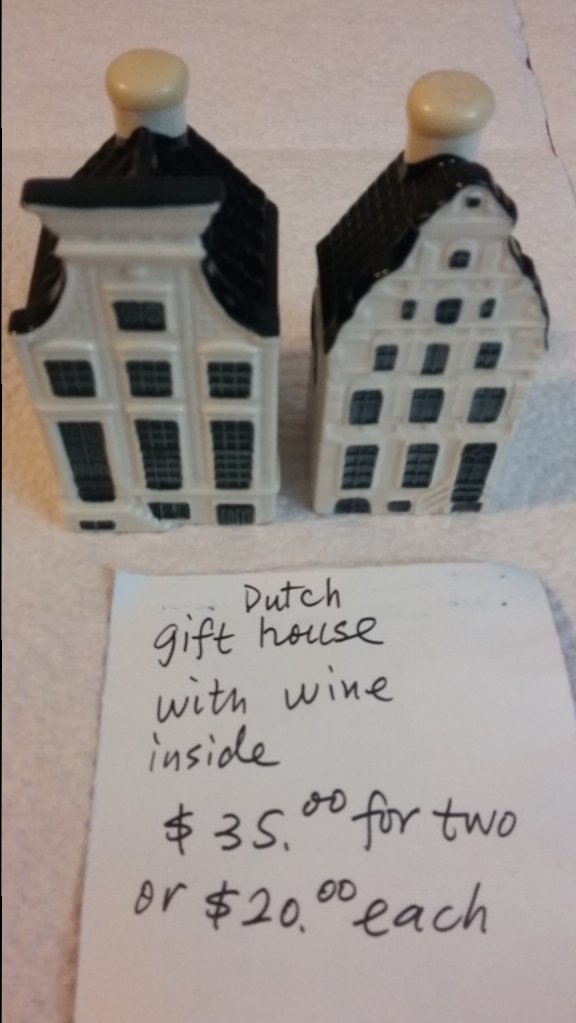 Dutch
gift house
with wine
inside
$35.00 for two
or $20.00 each